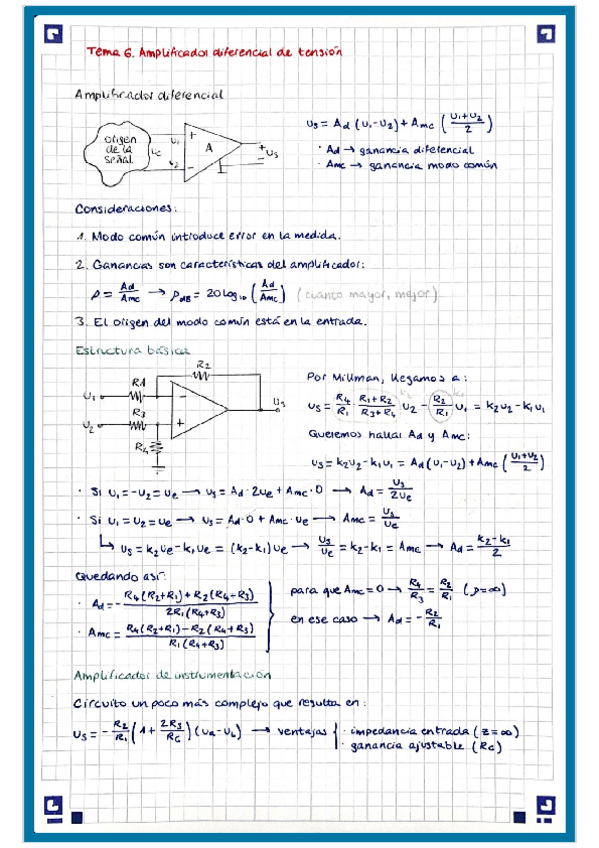 Tema 6. Amplificador diferencial de tensión
Amplificador diferencial
origen de la señal
Uc
U₁
U₂
+
-
A
+
-
Us
Us = Ad (U₁-U₂) + Amc ( (U₁+U₂)/2 )
· Ad → ganancia diferencial
· Amc → ganancia modo común
Consideraciones:
1. Modo común introduce error en la medida.
2. Ganancias son características del amplificador:
ρ = Ad/Amc → ρdB = 20 log₁₀ (Ad/Amc) (cuanto mayor, mejor)
3. El origen del modo común está en la entrada.
Estructura básica
R2
R1
U₁
R3
U₂
R4
-
+
Us
Por Millman, llegamos a:
Us = R4/R1 · (R1+R2)/(R3+R4) U₂ - R2/R1 U₁ = k₂U₂ - k₁U₁
k₂
k₁
Queremos hallar Ad y Amc:
Us = k₂U₂ - k₁U₁ = Ad (U₁-U₂) + Amc ( (U₁+U₂)/2 )
· Si U₁ = -U₂ = Ue → Us = Ad · 2Ue + Amc · 0 → Ad = Us/2Ue
· Si U₁ = U₂ = Ue → Us = Ad · 0 + Amc · Ue → Amc = Us/Ue
↳ Us = k₂Ue - k₁Ue = (k₂-k₁)Ue → Us/Ue = k₂-k₁ = Amc → Ad = (k₂-k₁)/2
Quedando así:
· Ad = - (R4(R2+R1) + R2(R4-R3))/(2R1(R4+R3))
· Amc = (R4(R2+R1) - R2(R4+R3))/(R1(R4+R3))
para que Amc = 0 → R4/R3 = R2/R1 (ρ=∞)
en ese caso → Ad = - R2/R1
Amplificador de instrumentación
Circuito un poco más complejo que resulta en:
Us = - R2/R1 (1 + 2R3/RG) (Ua-Ub) → ventajas
· impedancia entrada (Z=∞)
· ganancia ajustable (RG)